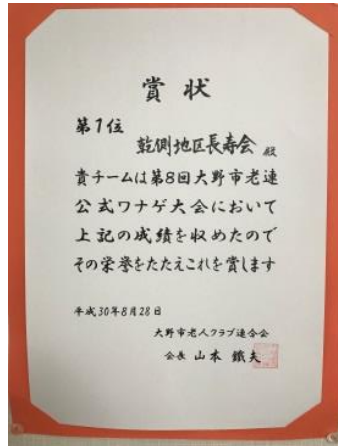 賞状
第1位
乾側地区長寿会 殿
貴チームは第8回大野市老連
公式ワナゲ大会において
上記の成績を収めたので
その栄誉をたたえこれを賞します
平成30年8月28日
大野市老人クラブ連合会
会長 山本 鐵夫